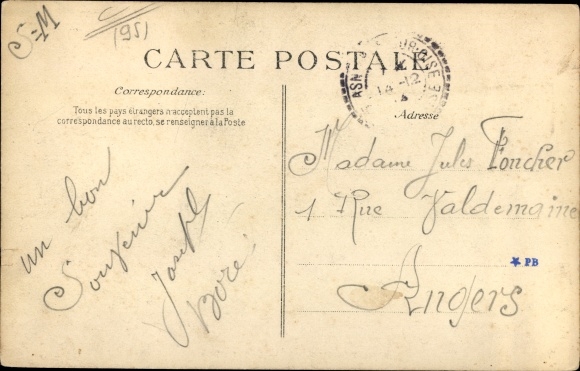 S-M
1951
CARTE POSTALE
Correspondance:
Tous les pays étrangers n'acceptent pas la
correspondance au recto, se renseigner à la Poste
Adresse
un bon
Souvenir
Joseph
Boré
Madame Jules Foncher
1 Rue Valdemaine
Angers
PB